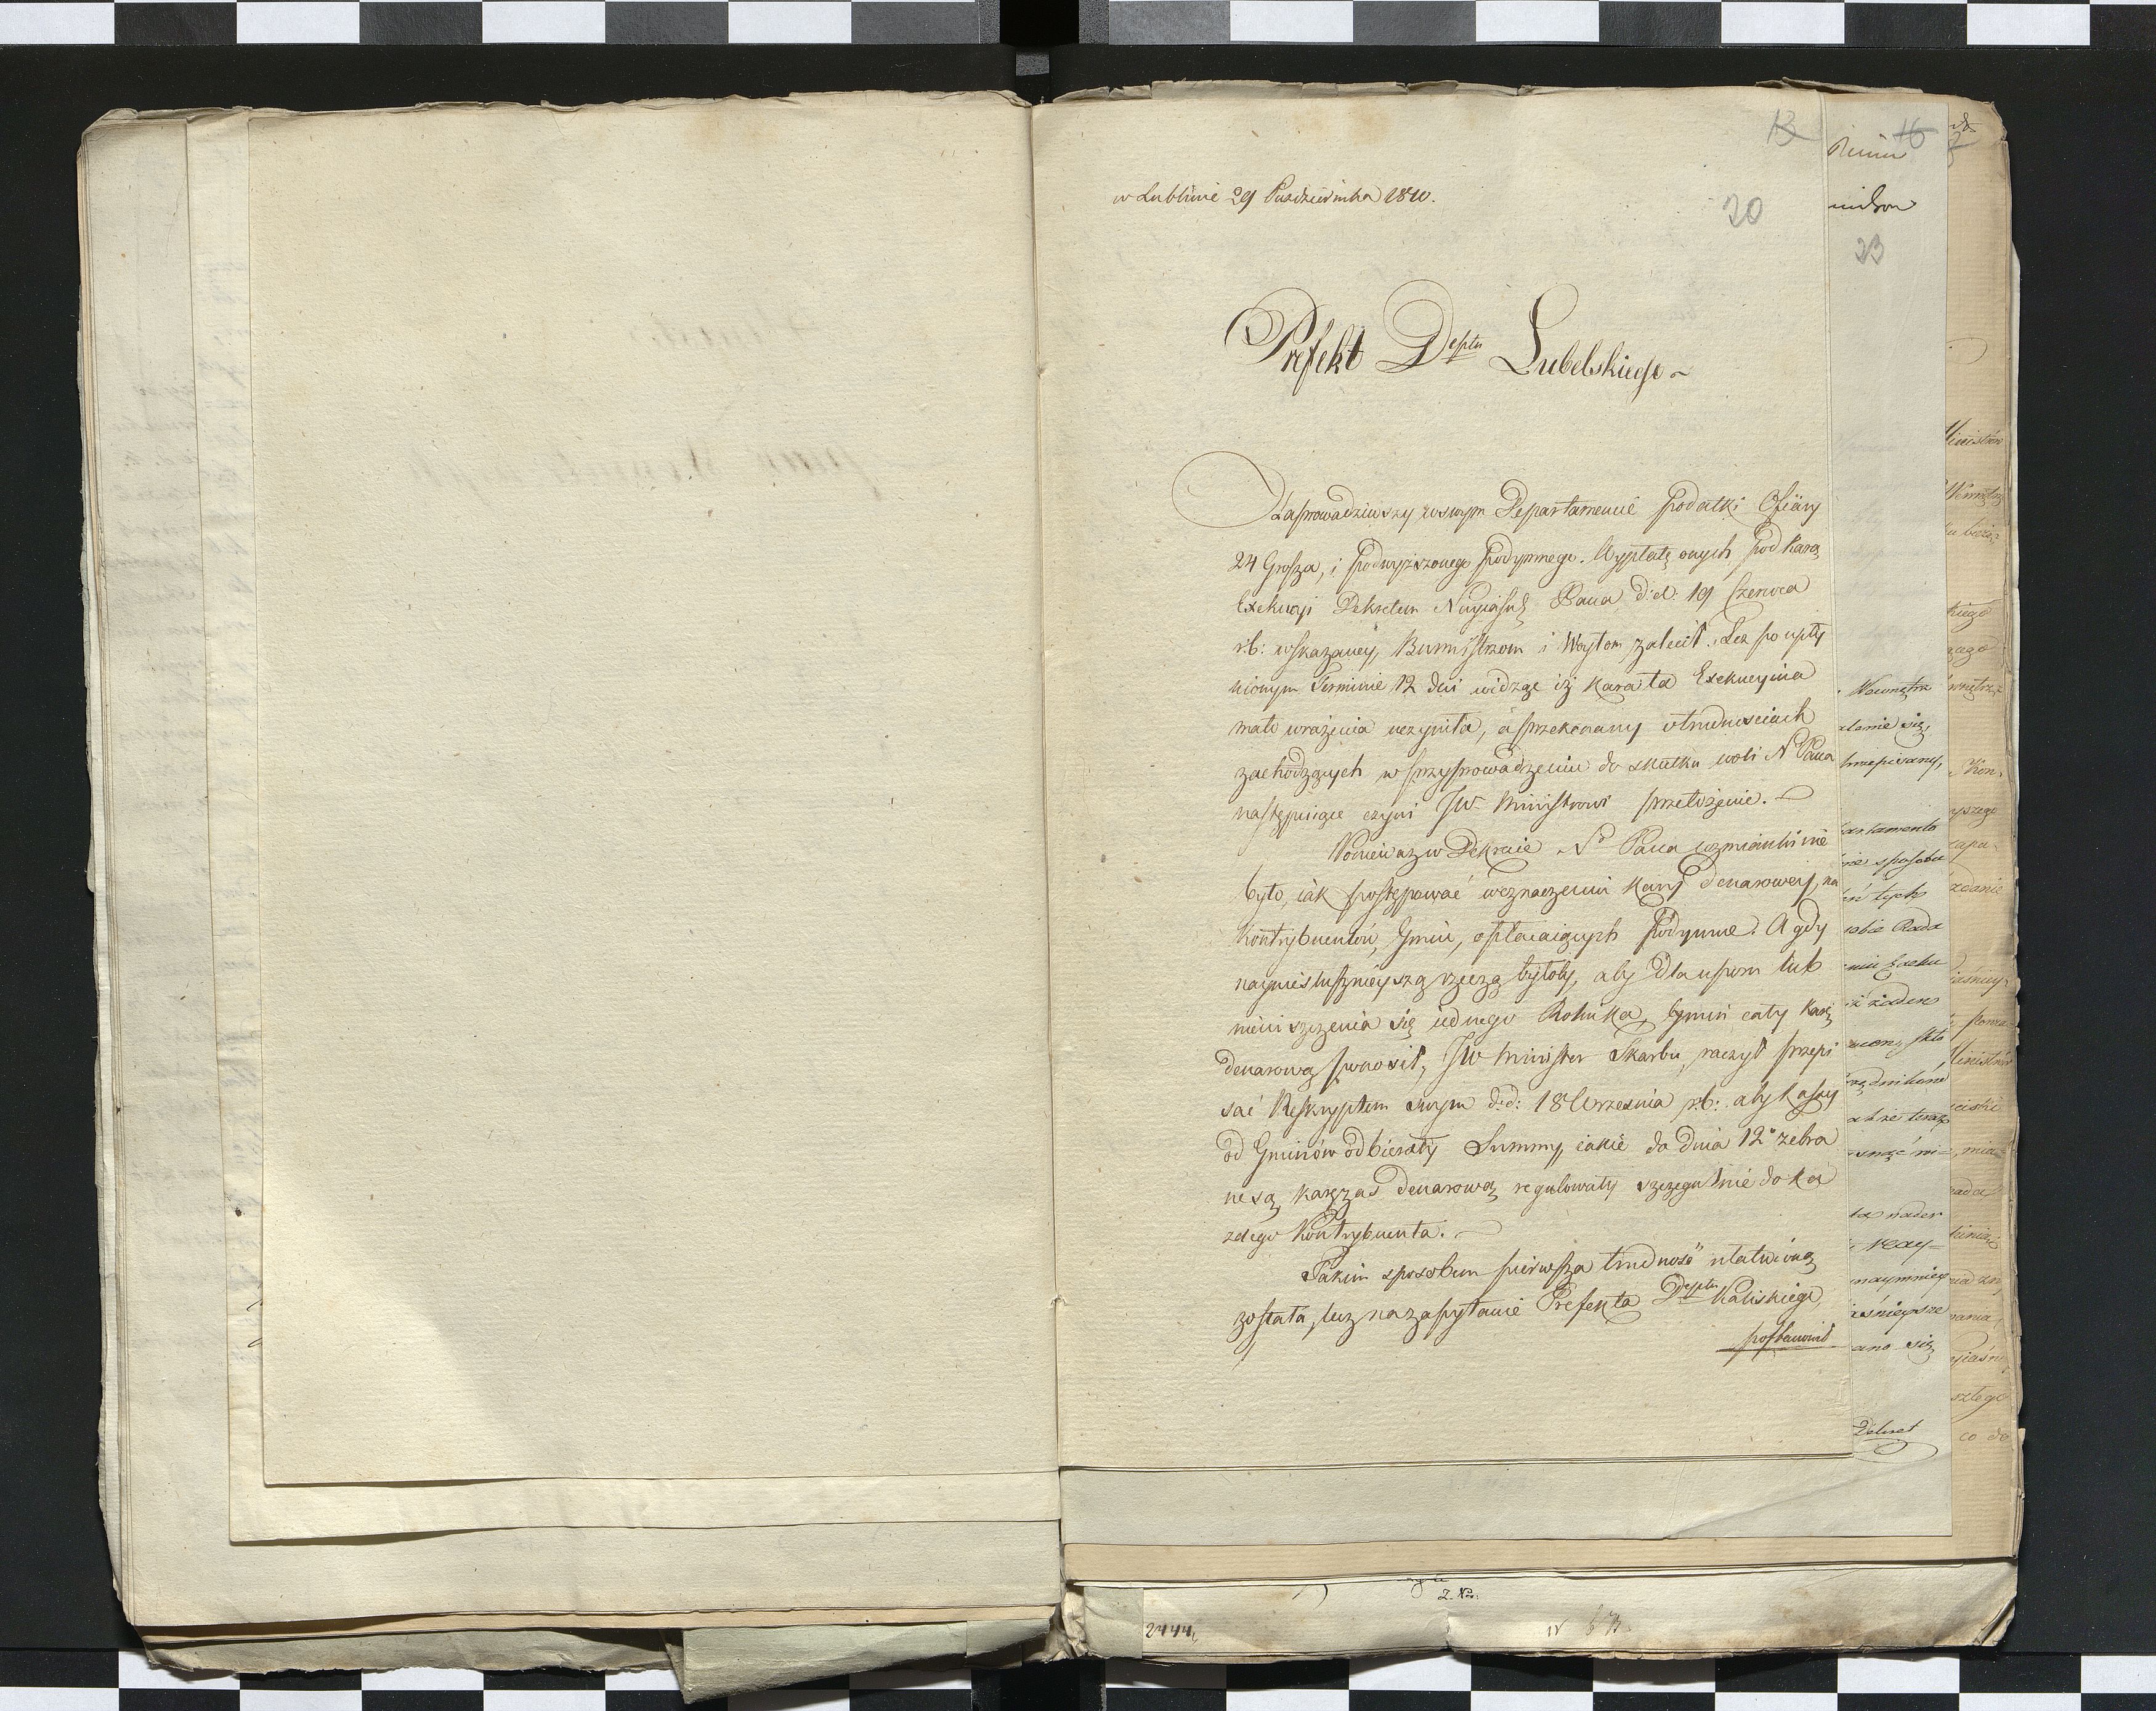 13
16
w Lublinie 29 Pazdziernika 1810.
20
23
Prefekt Deptu Lubelskiego
Zaprowadziwszy w swym Departamencie podatki Ofiary
24 Grosza, i podwyższonego Podymnego. Wypłatę onych pod karą
Exekucji Dekretem Nayiaśnſ Pana d:d: 19 Czerwca
r.b: wskazaney, Burmistrzom i Woytom zalecił. Lecz po upły
nionym Terminie 12 dni widząc iż kara ta Exekucyina
mało wrażenia uczyniła, a przekonany o trudnosciach
zachodzących w przyprowadzeniu do skutku woli N Pana
następuiące czyni JW. Ministrowi przełożenie.
Ponieważ w Dekrecie No Pana wzmianki nie
było, iak postępować w oznaczeniu kary denarowey, na
Kontrybuentów, Gmin, opłacaiących Podymne. A gdy
nayniesłuszniejszą rzeczą byłoby, aby dla uporu lub
nieuiszczenia się iednego Rolnika, Gmin cały karę
denarową ponosił, JW Minister Skarbu, raczył przepi
sać Reskryptem swym d:d: 18 Września r.b: aby Kassy
od Gminów odbierały Summy, iakie do dnia 12o zebra
ne są, karę zaś denarową regulowały szczegulnie do ka
żdego Kontrybuenta.
Takim sposobem pierwsza trudność ułatwioną
została, lecz na zapytanie Prefekta Deptu Kaliskiego,
postanowił
Wewnętrz
się,
sposobu
tych
Rada
żaden
teraz
naymniey
się
Dekret
2444